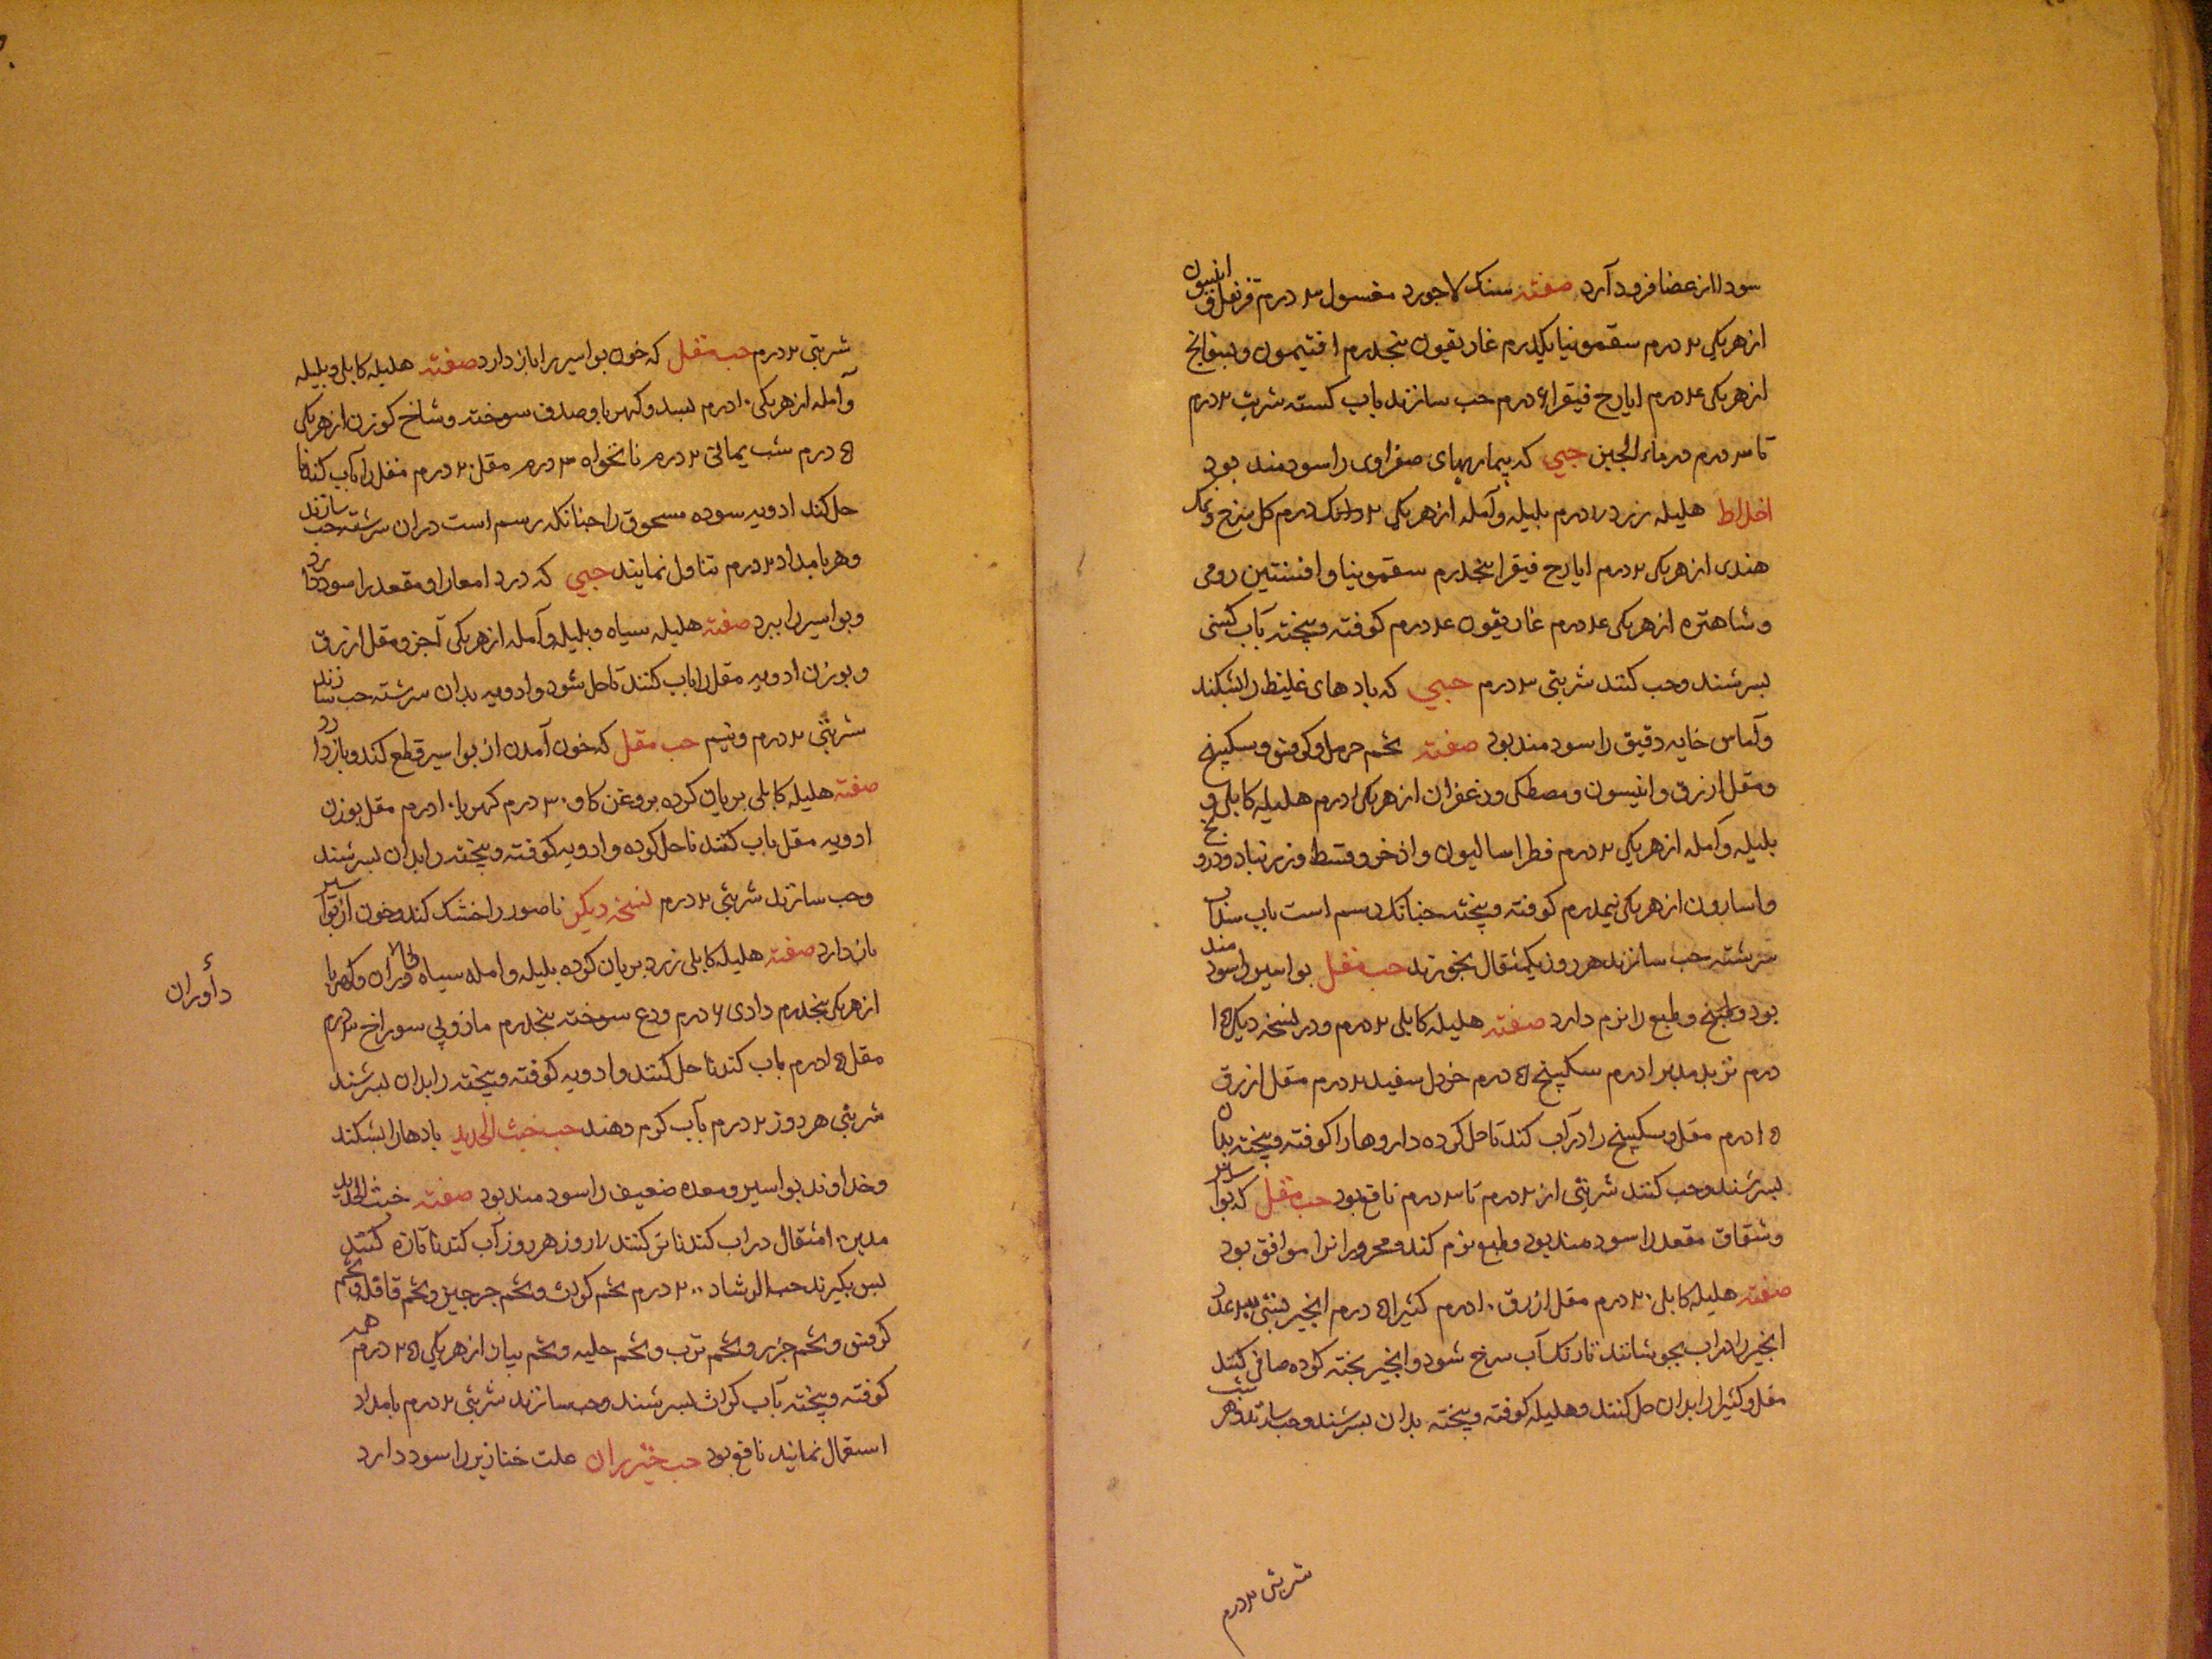 سودا از عضا فرود آرد صفته سنک لاجورد مغسول ۳ درم قرنفل و انیسون
از هریکی ۲ درم سقمونیا یکدرم غاریقون پنجدرم افتیمون و بسفایج
از هریکی ۴ درم ایارج فیقرا ۶ درم حب سازند باب کسته شربت ۲ درم
تا ۳ درم در ماء الجبن حبی که بیماریهای صفراوی را سودمند بود
اخلاط هلیله زرد درم بلیله و آمله از هریکی ۲ دانک درم کل سرخ و نمک
هندی از هریکی ۲ درم ایارج فیقرا پنجدرم سقمونیا و افسنتین رومی
و شاهتره از هریکی ۴ درم غاریقون ۴ درم کوفته و بیخته بآب کسنی
بسرشند و حب کنند شربتی ۳ درم حبی که بادهای غلیظ را بشکند
و آماس خایه دقیق را سودمند بود صفته تخم حرمل و کرفس و سکبینج
و مقل ازرق و انیسون و مصطکی و زعفران از هریکی ادرم هلیله کابلی و
بلیله و آمله از هریکی ۲ درم فطراسالیون و اذخر و قسط و زرنباد و درونج
و اسارون از هریکی نیمدرم کوفته و بیخته چنانک رسم است باب سداب
سرشته حب سازند هر روز یکمثقال بخورند حب مقل بواسیر را سودمند
بود و طبع را نرم دارد صفته هلیله کابلی ۲ درم و در نسخه دیکر ۱۵
درم تربد مدبر ۱ درم سکبینج ۵ درم خردل سفید ۲ درم مقل ازرق
۱۵ درم مقل و سکبینج را در آب کندنا حل کرده داروها را کوفته و بیخته بدان
بسرشند و حب کنند شربتی از ۲ درم تا ۳ درم نافع بود حب مقل که بواسیر
و شقاق مقعد را سودمند بود و طبع نرم کند و محرورانرا موافق بود
صفته هلیله کابلی ۲۰ درم مقل ازرق ۱۰ درم کثیرا ۵ درم انجیر بستی عدد
انجیر را در آب بجوشانند تا رنک آب سرخ شود و انجیر پخته کرده صافی کنند
مقل و کثیرا را بدان حل کنند و هلیله کوفته و بیخته بدان بسرشند و حب سازند و هر شب
شربتی ۲ درم
شربتی ۲ درم حب مقل که خون بواسیر را باز دارد صفته هلیله کابلی و بلیله
و آمله از هریکی ۱۰ درم بسد و کهربا و صدف سوخته و شاخ کوزن از هریکی
۵ درم شب یمانی ۲ درم نانخواه ۳ درم مقل ۲۰ درم مقل را بآب کندنا
حل کند ادویه سوده مسحوق را چنانکه رسم است در ان سرشته حب سازند
و هر بامداد ۲ درم تناول نمایند حبی که درد امعا را و مقعد را سود دارد
و بواسیر را ببرد صفته هلیله سیاه و بلیله و آمله از هریکی آجزو مقل ازرق
و بوزن ادویه مقل را باب کنند تا حل شود و ادویه بدان سرشته حب سازند
شربتی ۲ درم و نیم حب مقل که خون آمدن از بواسیر قطع کند و باز دارد
صفته هلیله کابلی بریان کرده بروغن کاو ۳۰ درم کهربا ۱۰ درم مقل بوزن
ادویه مقل باب کندنا حل کرده و ادویه کوفته و بیخته را بدان بسرشند
و حب سازند شربتی ۲ درم نسخه دیکر ناصور را خشک کند و خون از بواسیر
باز دارد صفته هلیله کابلی زرد بریان کرده بلیله و امله سیاه و کهربا
داوران
از هریکی پنجدرم دادی ۶ درم ودع سوخته پنجدرم مازو بی سوراخ ۳ درم
مقل ۱۵ درم باب کندنا حل کنند و ادویه کوفته و بیخته را بدان بسرشند
شربتی هر روز ۲ درم بآب کرم دهند حب خبث الحدید بادها را بشکند
و خداوند بواسیر و معده ضعیف را سودمند بود صفته خبث الحدید
مدبر ۱۰ مثقال در اب کندنا تر کنند ۷ روز هر روز آب کندنا تازه کنند
پس بکیرند حب الرشاد ۲۰۰ درم تخم کراث و تخم جرجیر و تخم قاقله و تخم
کرفس و تخم جزر و تخم ترب و تخم حلبه و تخم بیان از هریکی ۲۵ درم همه
کوفته و بیخته بآب کراث بسرشند و حب سازند شربتی ۲ درم بامداد
استعمال نمایند نافع بود حب خیزران علت خنازیر را سود دارد